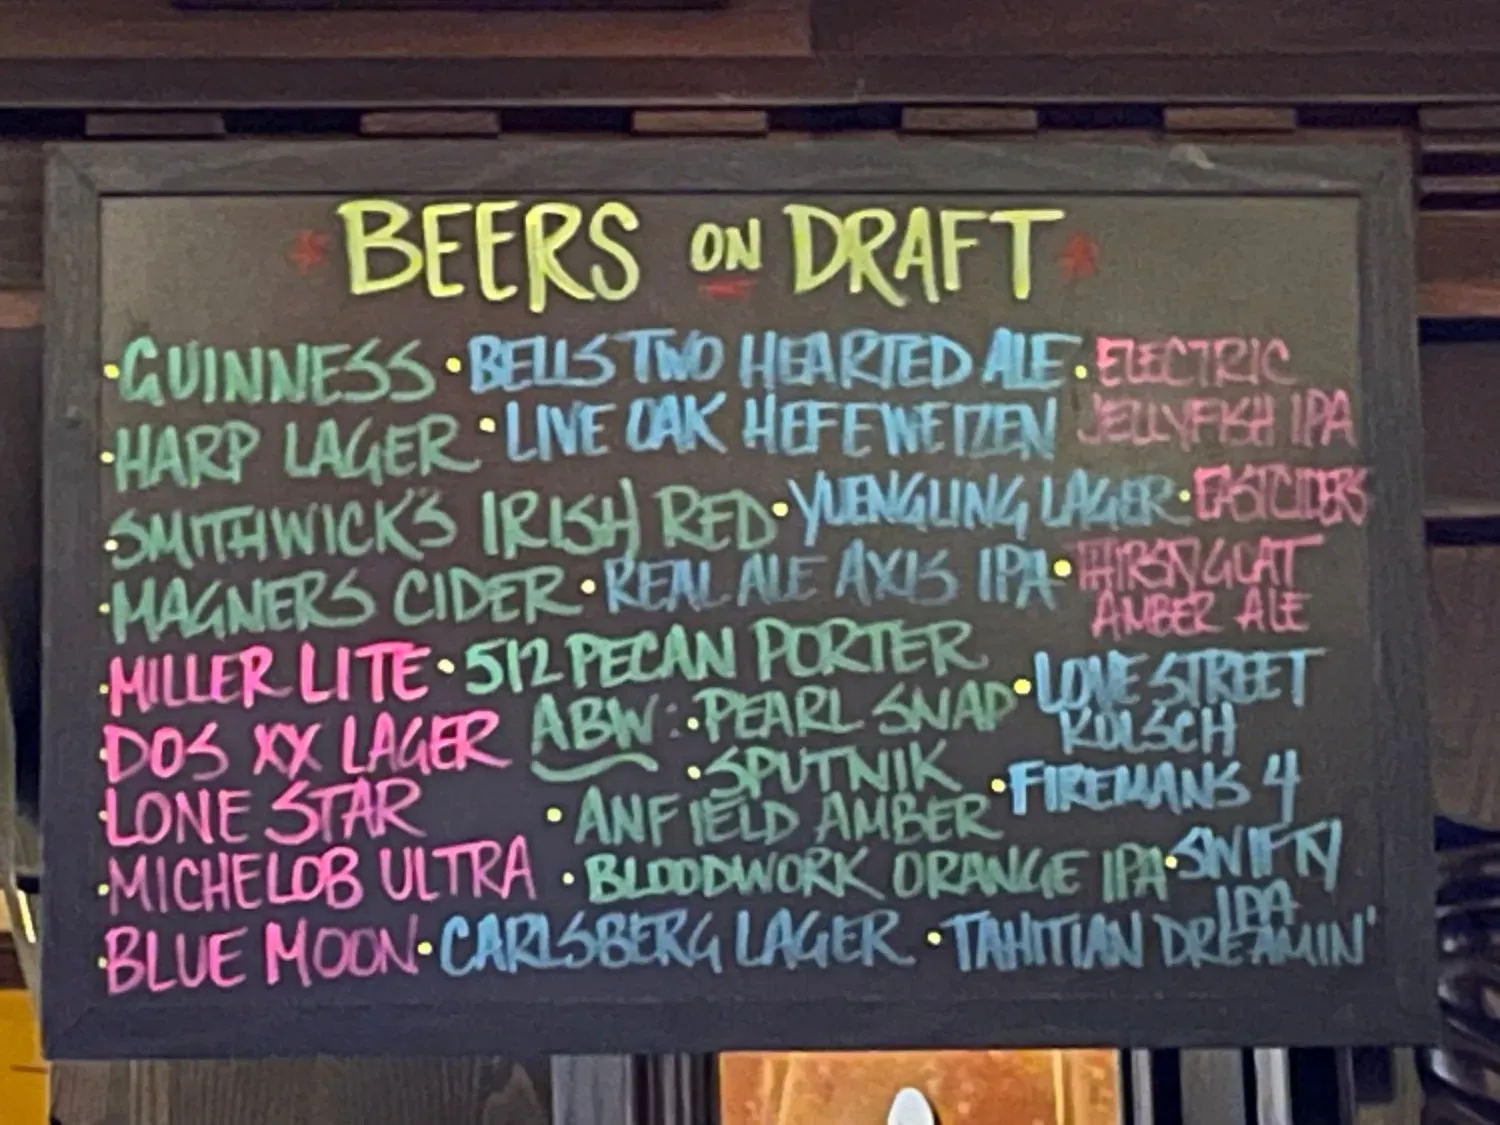 * BEERS ON DRAFT *
·GUINNESS ·BELLS TWO HEARTED ALE ·ELECTRIC
JELLYFISH IPA
·HARP LAGER ·LIVE OAK HEFEWEIZEN
·SMITHWICK'S IRISH RED ·YUENGLING LAGER ·EASTCIDERS
·MAGNERS CIDER ·REAL ALE AXIS IPA ·THIRSTY GOAT
AMBER ALE
·MILLER LITE ·512 PECAN PORTER ·LOVE STREET
KOLSCH
·DOS XX LAGER ABW: ·PEARL SNAP
·SPUTNIK ·FIREMANS 4
·LONE STAR ·ANFIELD AMBER
·MICHELOB ULTRA ·BLOODWORK ORANGE IPA ·SWIFTY
IPA
·BLUE MOON ·CARLSBERG LAGER ·TAHITIAN DREAMIN'